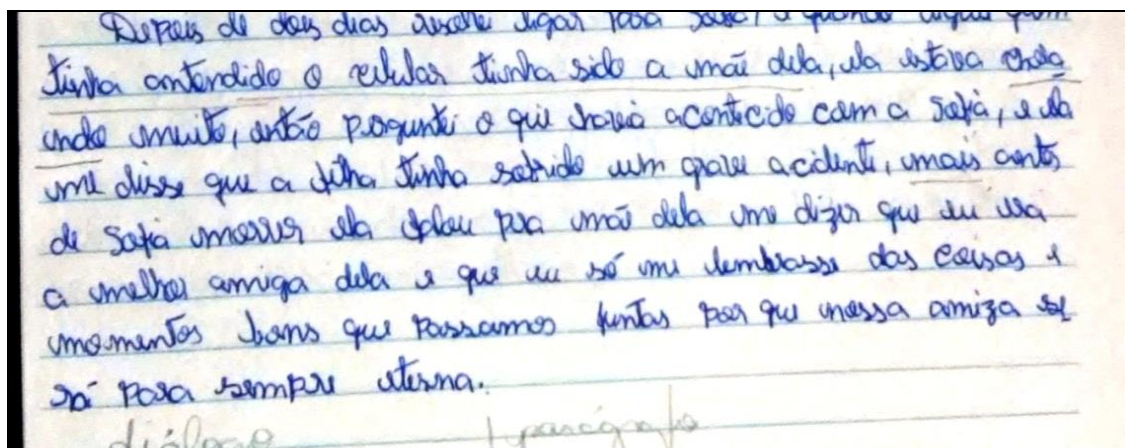 Depois de dois dias resolvi ligar para Sofia, e quando liguei quem
tinha antendido o celular tinha sido a mãe dela, ela estava chora
undo muito, então perguntei o que havia acontecido com a Sofia, e ela
me disse que a filha tinha sofrido um grave acidente, mais antes
de Sofia morrer ela falou pra mãe dela me dizer que eu era
a melhor amiga dela e que eu só me lembrasse das coisas e
momentos bons que passamos juntas por que nossa amiza se
rá para sempre eterna.
diálogo parágrafo